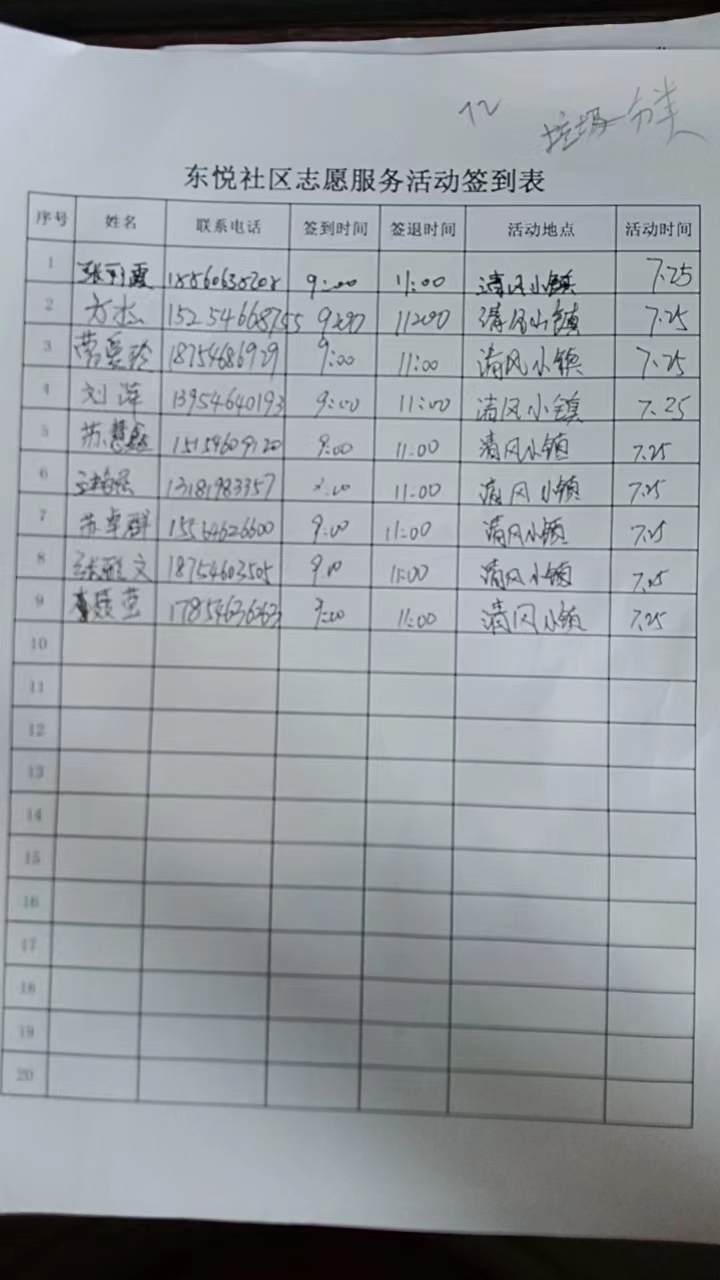 72
垃圾分类
东悦社区志愿服务活动签到表
序号 姓名 联系电话 签到时间 签退时间 活动地点 活动时间
1 9:00 11:00 清风小镇 7.25
2 方杰 15254668755 9:00 11:00 清风小镇 7.25
3 18754686929 9:00 11:00 清风小镇 7.25
4 刘萍 13954640193 9:00 11:00 清风小镇 7.25
5 15154609120 9:00 11:00 清风小镇 7.25
6 13181983357 11:00 清风小镇 7.25
7 苏卓群 15564626600 9:00 11:00 清风小镇 7.25
8 张雅文 18754603505 9:00 11:00 清风小镇 7.25
9 17854636263 9:00 11:00 清风小镇 7.25
10
11
12
13
14
15
16
17
18
19
20